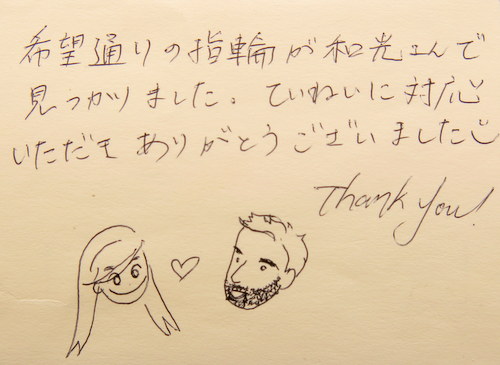 希望通りの指輪が和光さんで
見つかりました。ていねいに対応
いただき ありがとうございました
Thank you!